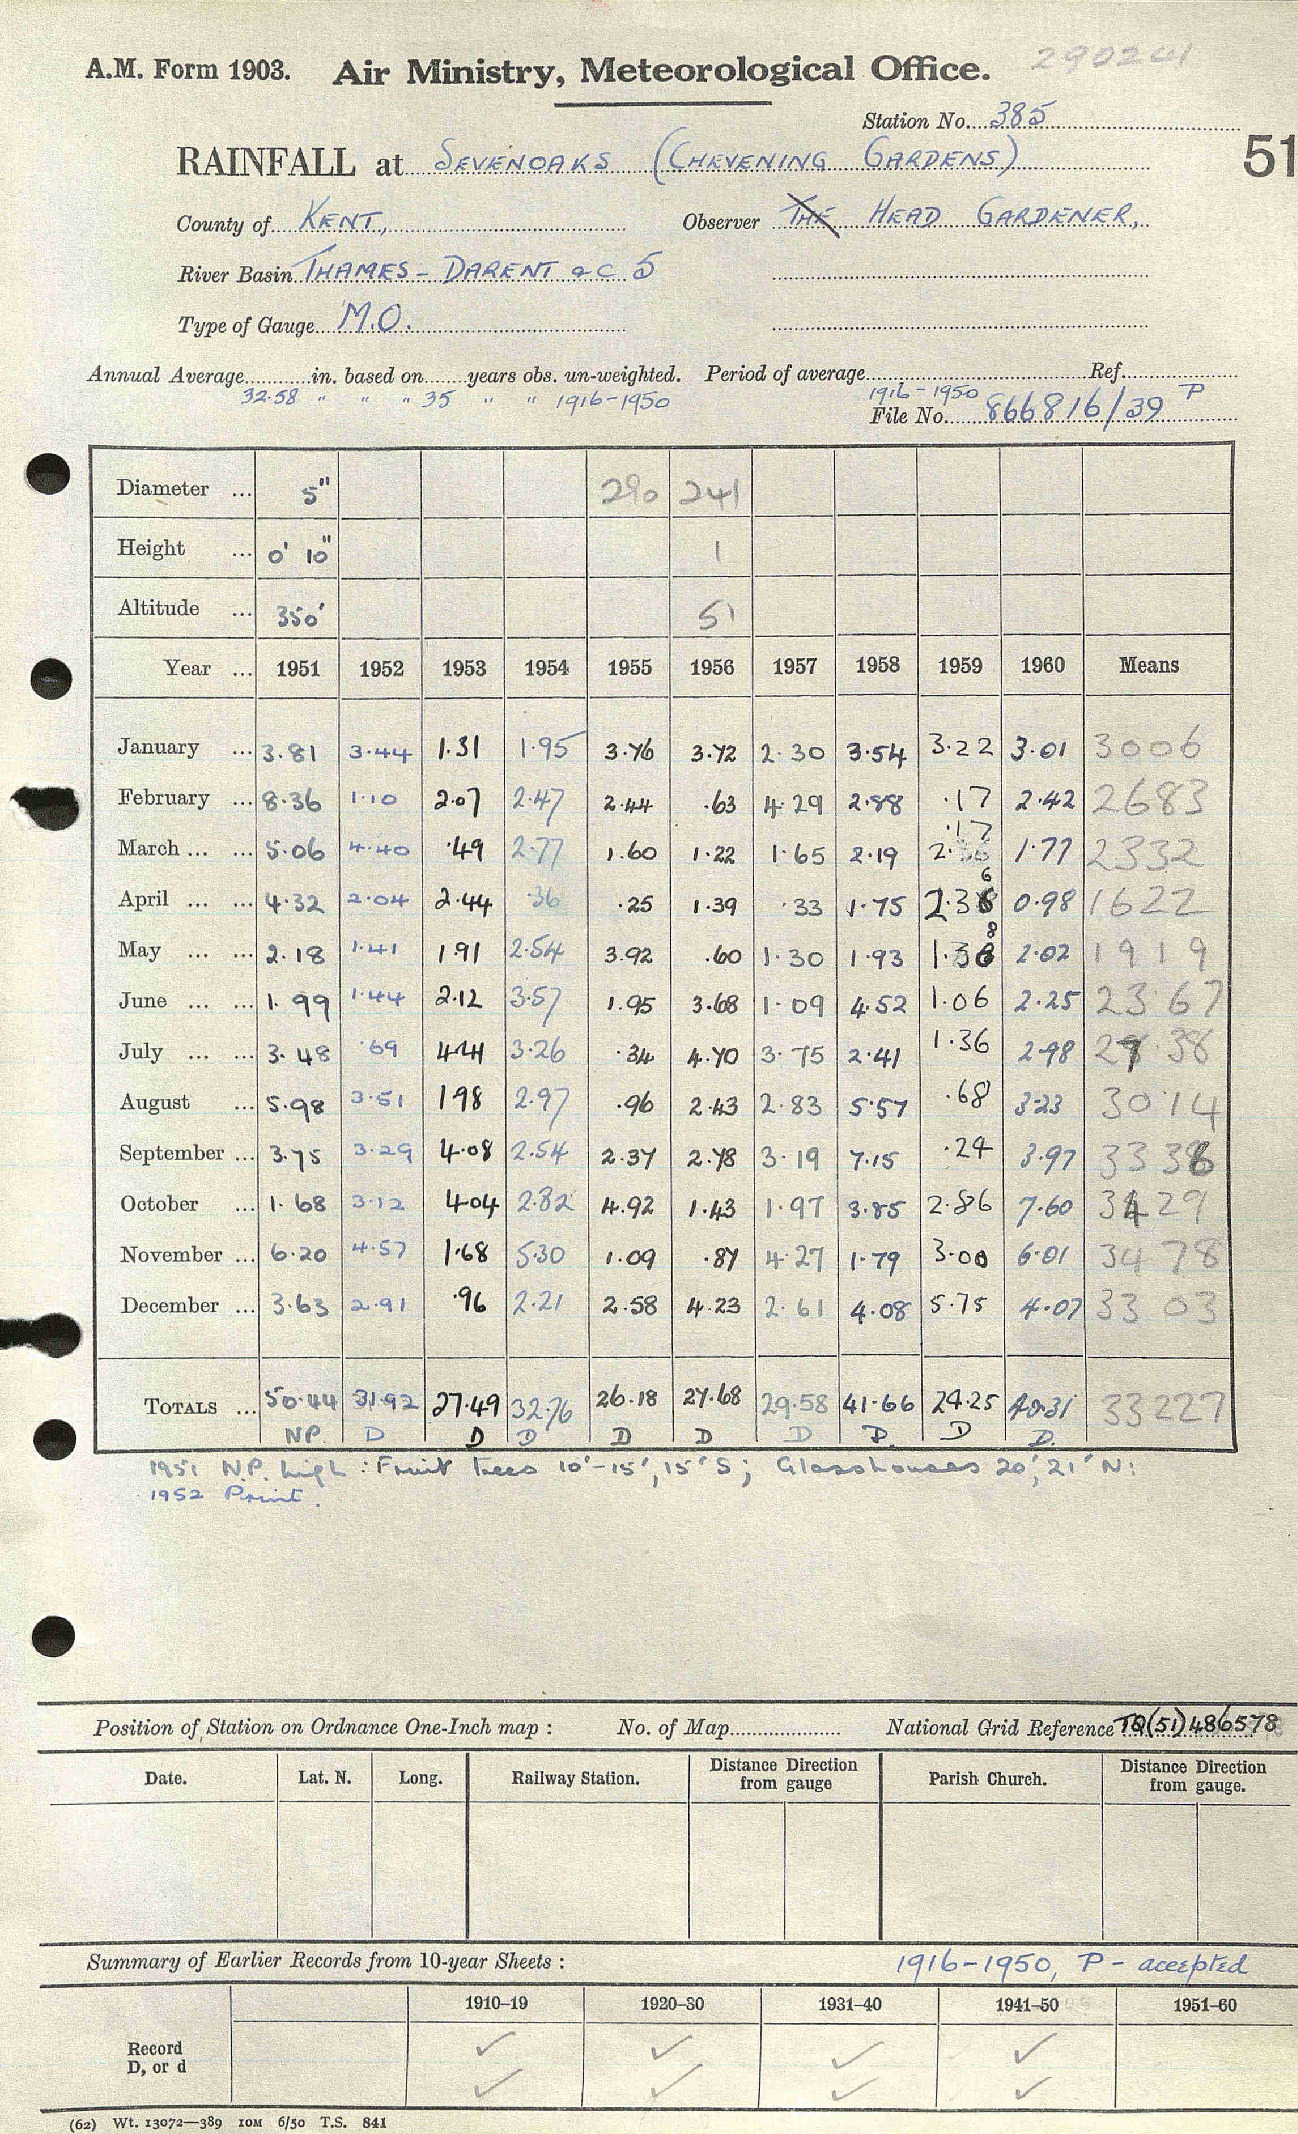 290241
A.M. Form 1903. Air Ministry, Meteorological Office.
Station No. 385
51
RAINFALL at SEVENOAKS (CHEVENING GARDENS)
County of KENT, Observer THE HEAD GARDENER,
River Basin THAMES - DARENT &C 5
Type of Gauge M.O.
Annual Average in. based on years obs. un-weighted. Period of average Ref.
32.58 " " " 35 " " 1916-1950 1916-1950 P
File No. 866816/39
Diameter ... 5" 290 241
Height ... 0' 10" 1
Altitude ... 350' 51
Year ... 1951 1952 1953 1954 1955 1956 1957 1958 1959 1960 Means
January ... 3.81 3.44 1.31 1.95 3.76 3.72 2.30 3.54 3.22 3.01 3006
February ... 8.36 1.10 2.07 2.47 2.44 .63 4.29 2.88 .17 2.42 2683
.17
March ... ... 5.06 4.40 .49 2.77 1.60 1.22 1.65 2.19 1.77 2332
6
April ... ... 4.32 2.04 2.44 .36 .25 1.39 .33 1.75 2.36 0.98 1622
8
May ... ... 2.18 1.41 1.91 2.54 3.92 .60 1.30 1.93 1.38 2.02 1919
June ... ... 1.99 1.44 2.12 3.57 1.95 3.68 1.09 4.52 1.06 2.25 2367
July ... ... 3.48 .69 4.41 3.26 .34 4.70 3.75 2.41 1.36 2.98 2738
August ... 5.98 3.51 1.98 2.97 .96 2.43 2.83 5.57 .68 3.23 3014
September ... 3.75 3.29 4.08 2.54 2.37 2.78 3.19 7.15 .24 3.97 3336
October ... 1.68 3.12 4.04 2.82 4.92 1.43 1.97 3.85 2.86 7.60 3429
November ... 6.20 4.57 1.68 5.30 1.09 .87 4.27 1.79 3.00 6.01 3478
December ... 3.63 2.91 .96 2.21 2.58 4.23 2.61 4.08 5.75 4.07 3303
TOTALS ... 50.44 31.92 27.49 32.76 26.18 27.68 29.58 41.66 24.25 40.31 33227
NP. D D D D D D D. D D.
1951 N.P. high : Fruit trees 10'-15', 15' S; Glasshouses 20', 21' N:
1952 Print.
Position of Station on Ordnance One-Inch map : No. of Map National Grid Reference TQ(51)486578
Date. Lat. N. Long. Railway Station. Distance Direction from gauge Parish Church. Distance Direction from gauge.
Summary of Earlier Records from 10-year Sheets : 1916-1950, P - accepted
1910–19 1920–30 1931–40 1941–50 1951–60
Record ✓ ✓ ✓ ✓
D, or d ✓ ✓ ✓ ✓
(62) Wt. 13072—389 10M 6/50 T.S. 841